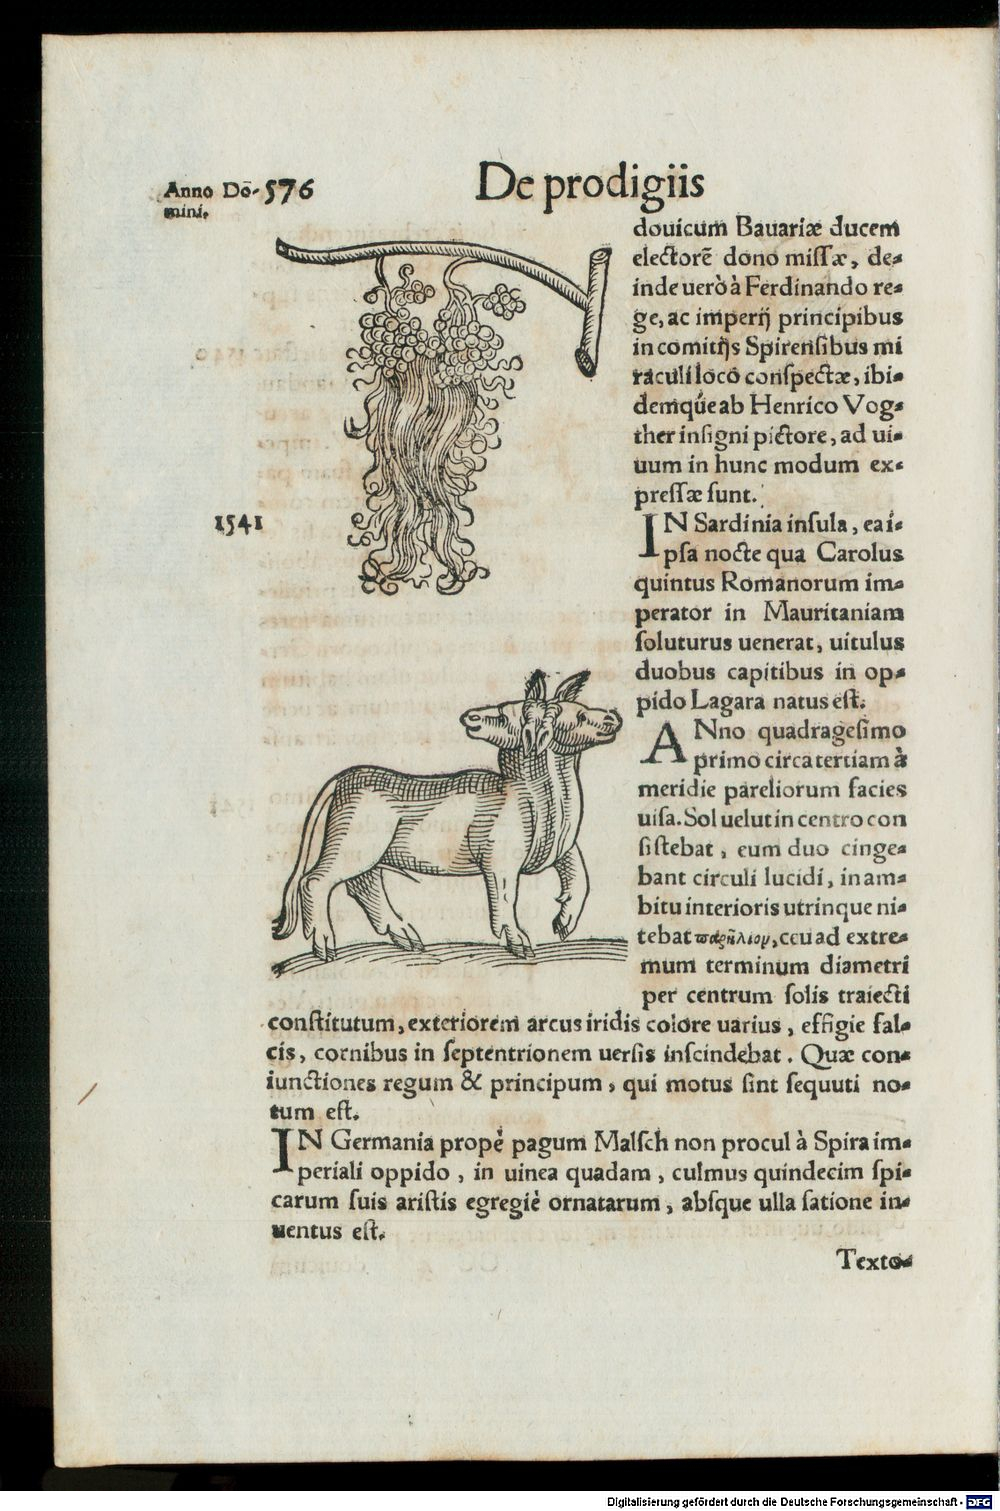 Anno Dō-
mini.
576
De prodigiis
douicum Bauariæ ducem
electorē dono missæ, de-
inde uerò à Ferdinando re-
ge, ac imperij principibus
in comitijs Spirensibus mi
raculi loco conspectæ, ibi-
demq́ue ab Henrico Vog-
ther insigni pictore, ad ui-
uum in hunc modum ex-
pressæ sunt.
1541
IN Sardinia insula, ea i-
psa nocte qua Carolus
quintus Romanorum im-
perator in Mauritaniam
soluturus uenerat, uitulus
duobus capitibus in op-
pido Lagara natus est.
ANno quadragesimo
primo circa tertiam à
meridie pareliorum facies
uisa. Sol uelut in centro con
sistebat, eum duo cinge-
bant circuli lucidi, in am-
bitu interioris utrinque ni-
tebat παρήλιον, ceu ad extre-
mum terminum diametri
per centrum solis traiecti
constitutum, exteriorem arcus iridis colore uarius, effigie fal-
cis, cornibus in septentrionem uersis inscindebat. Quæ con-
iunctiones regum & principum, qui motus sint sequuti no-
tum est.
IN Germania propè pagum Malsch non procul à Spira im-
periali oppido, in uinea quadam, culmus quindecim spi-
carum suis aristis egregiè ornatarum, absque ulla satione in-
uentus est.
Texto-
Digitalisierung gefördert durch die Deutsche Forschungsgemeinschaft - DFG